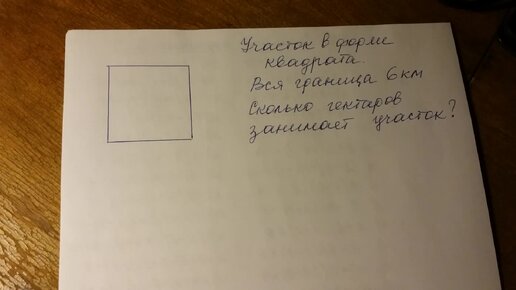 Участок в форме
квадрата.
Вся граница 6 км
Сколько гектаров
занимает участок?